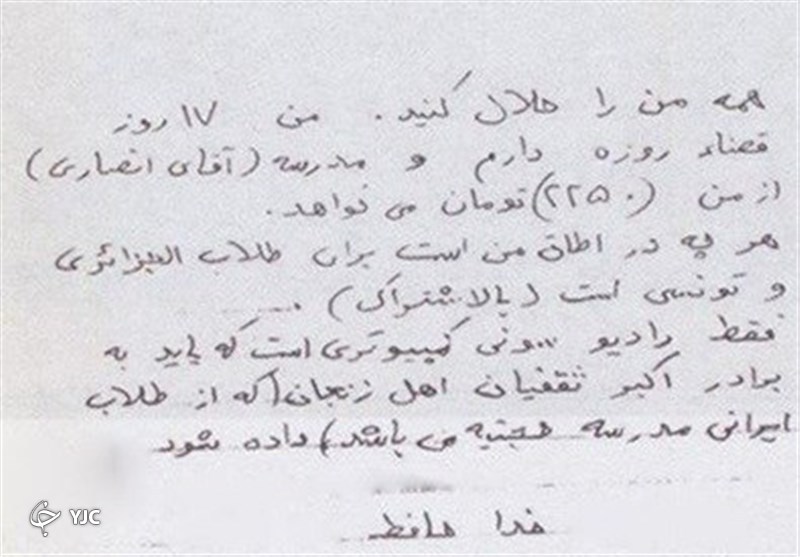 همه من را حلال کنید. من ۱۷ روز
قضاء روزه دارم و مدرسه (آقای انصاری)
از من (۲۲۵۰) تومان می خواهد.
هر چه در اطاق من است برای طلاب الجزائری
و تونسی است (بالاشتراک).
فقط رادیو سونی کمپیوتری است که باید به
برادر اکبر ثقفیان اهل زنجان (که از طلاب
ایرانی مدرسه حجتیه می باشد) داده شود
خدا حافظ
YJC